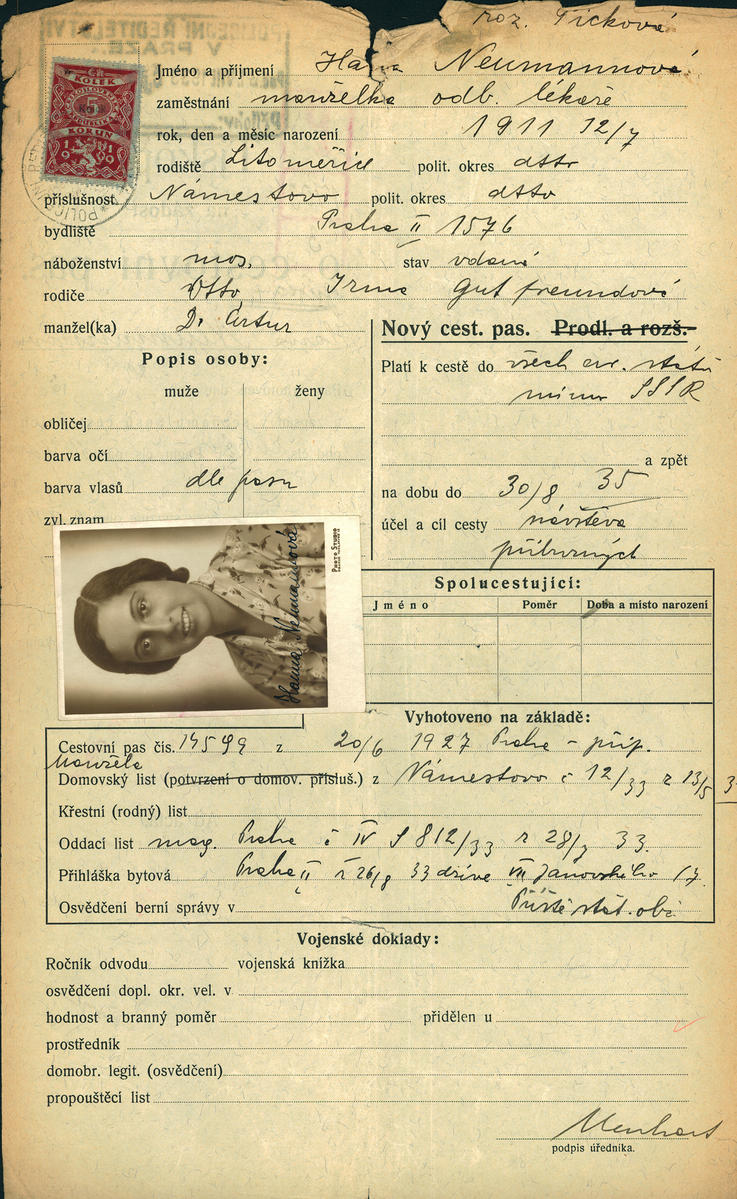 roz. Pickova
Jméno a příjmení Hana Neumannová
zaměstnání manželka odb. lékaře
rok, den a měsíc narození 1911 12/7
rodiště Litoměřice polit. okres dtto
příslušnost Námestovo polit. okres dtto
bydliště Praha II 1576
náboženství mos. stav vdaná
rodiče Otto, Irma Gutfreundová
manžel(ka) Dr Artur
KOLEK
5
KORUN
19 31
Popis osoby:
muže ženy
obličej
barva očí
barva vlasů dle pasu
zvl. znam.
Nový cest. pas. Prodl. a rozš.
Platí k cestě do všech evr. států
mimo SSSR
a zpět
na dobu do 30/8 35
účel a cíl cesty návštěva
příbuzných
Photo Studio
Hanna Neumannová
Spolucestující:
Jméno Poměr Doba a místo narození
Vyhotoveno na základě:
Cestovní pas čís. 14599 z 20/6 1927 Praha - přip.
Manžela
Domovský list (potvrzení o domov. přísluš.) z Námestovo č 12/33 z 13/5 3
Křestní (rodný) list
Oddací list mag. Praha č IV S 812/33 z 28/7 33.
Přihláška bytová Praha II z 26/8 33 dříve VII Janovského 17
Osvědčení berní správy v
Příště stát. obč.
Vojenské doklady:
Ročník odvodu vojenská knížka
osvědčení dopl. okr. vel. v
hodnost a branný poměr přidělen u
prostředník
domobr. legit. (osvědčení)
propouštěcí list
podpis úředníka.